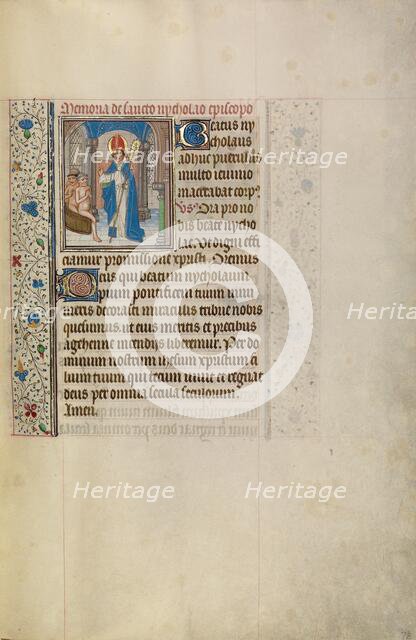 Memoria de sancto nycholao episcopo
Beatus ny
cholaus
adhuc puerulus
multo ieiunio
macerabat corp⁹
vs Ora pro no
bis beate nycho
lae Vt digni effi
ciamur promissione xpristi. Oremus
Deus qui beatum nycholaum
pium pontificem tuum innu
meris decorasti miraculis tribue nobis
quesumus. ut eius meritis et precibus
a gehenne incendiis liberemur. Per do
minum nostrum ihesum xpristum fi
lium tuum qui tecum viuit et regnat
deus per omnia secula seculorum.
Amen.
Heritage
Heritage
Heritage
Heritage
Heritage
Heritage
Heritage
Heritage